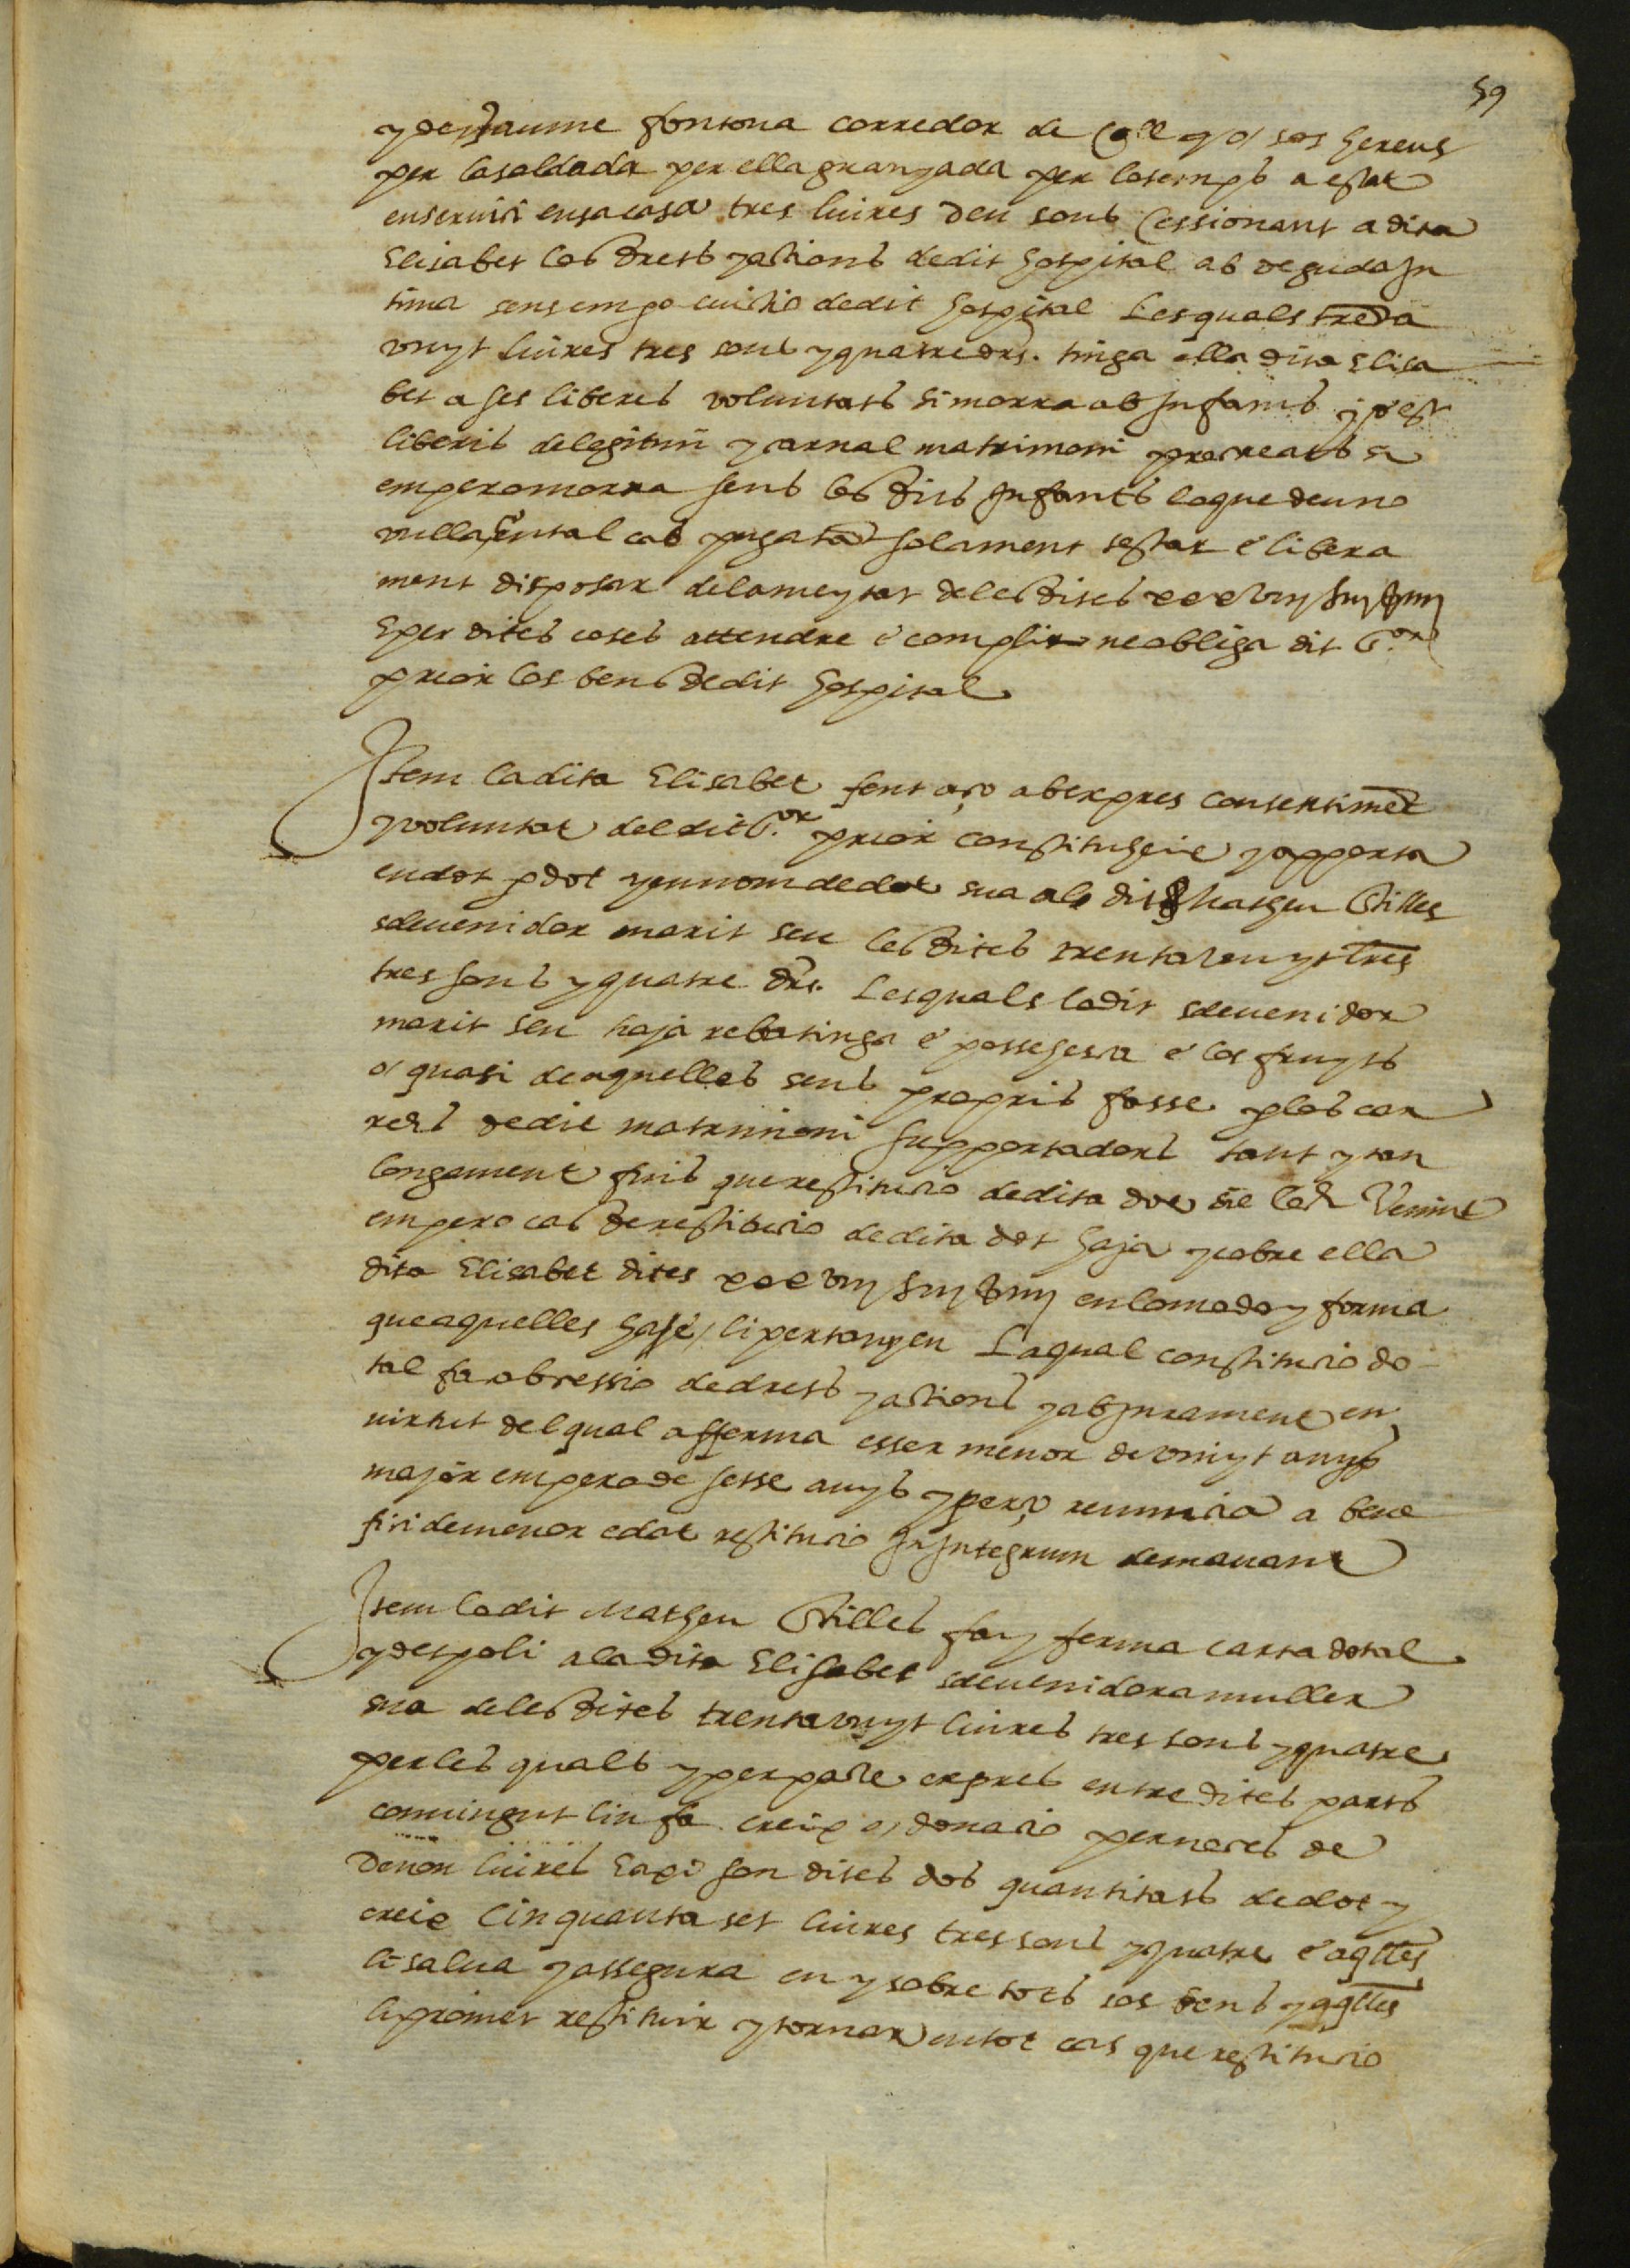 59
y den Jaume fontona corredor de Coll y o sos hereus
per la soldada per ella guanyada per lo temps a estat
en servici en sa casa tres liures deu sous Cessionant a dita
Elisabet los drets y actions de dit hospital ab deguda In
tima sens empo evictio de dit hospital Les quals trenta
vuyt liures tres sous y quatre drs. tinga ella dita Elisa
bet a ses liberes voluntats si morra ab Infants
liberis de legitim y carnal matrimoni procreats si
empero morra sens los dits Infants lo que deu no
vulla en tal cas puga tant solament testar e libera
ment disposar de la meytat de les dites xxxviij ß iij iiij
E per dites coses attendre e complir ne obliga dit Sor
prior los bens de dit hospital
Item la dita Elisabet fent aço ab expres consentiment
y voluntat del dit Sor prior constituheix y apporta
en dot p dot y en nom de dot sua al dit Matheu Stilles
sdevenidor marit seu les dites trenta vuyt lres
tres sous y quatre drs. Les quals lo dit sdevenidor
marit seu haja reba tinga e possehesca e los fruyts
o quasi de aquelles seus propris fasse p los car
rechs de dit matrimoni supportadors tant y tan
longament fins que restitucio de dita dot sie loch Venint
empero cas de restitucio de dita dot haja y cobre ella
dita Elisabet dites xxxviij ß iij iiij en lo modo y forma
que aquelles li pertanyen La qual constitucio do
tal fa ab cessio de drets y actions y ab Jurament en
virtut del qual afferma esser menor de vint anys
major empero de setse anys y per ço renuncia a bene
fici de menor edat restitucio In Integrum demanant
Item lo dit Matheu Stilles fa y ferma carta dotal
y despoli a la dita Elisabet sdevenidora muller
sua de les dites trenta vuyt liures tres sous y quatre
per les quals y per pacte expres entre dites parts
convingut lin fa creix o donacio per noces de
denou liures E axi son dites dos quantitats de dot y
creix Cinquanta set liures tres sous y quatre e aqlles
li salva y assegura en y sobre tots sos bens y aqlles
li promet restituir y tornar en tot cas que restitucio